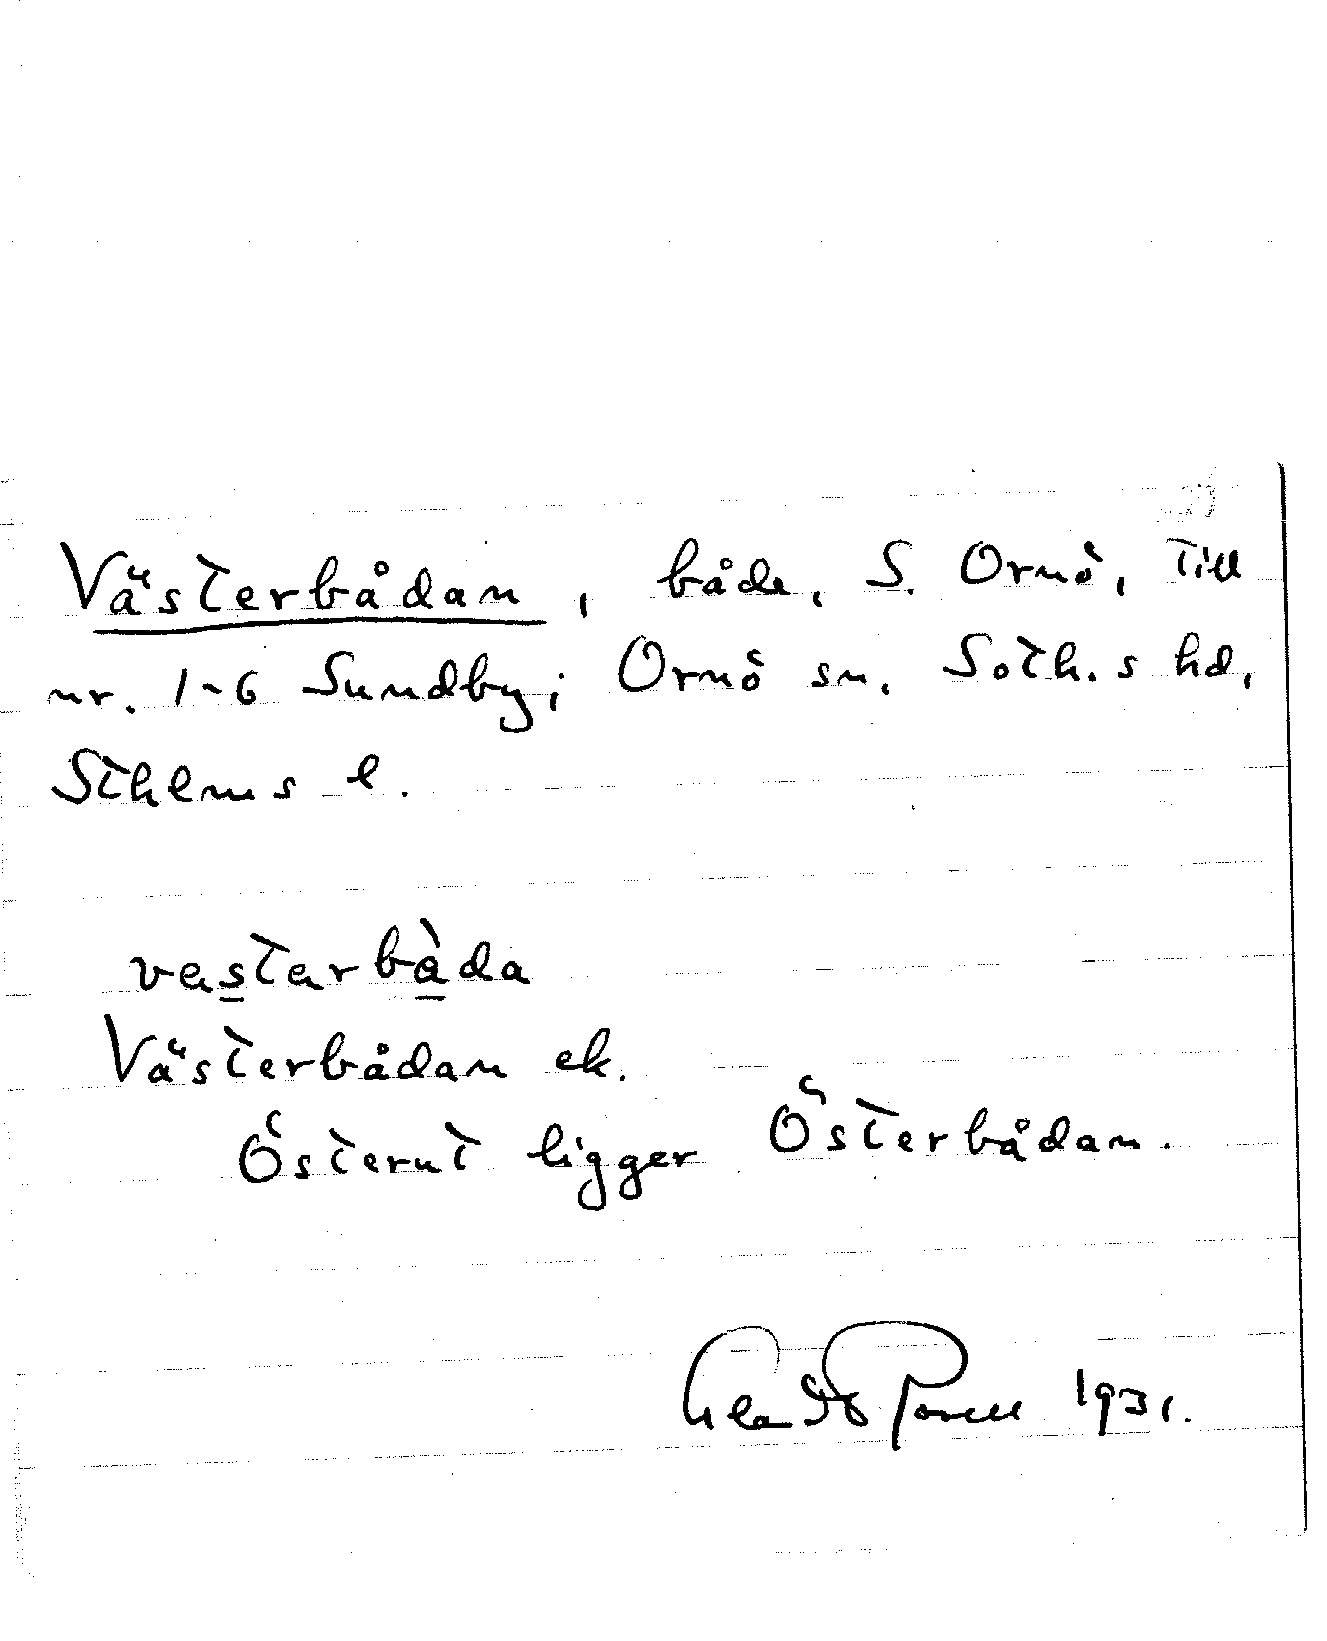 Västerbådan, både, S. Ornö, till
nr. 1-6 Sundby; Ornö sn. Soth.s hd,
Sthlms l.
vestarbàda
Västerbådan ek.
Österut ligger Österbådan.
1931.